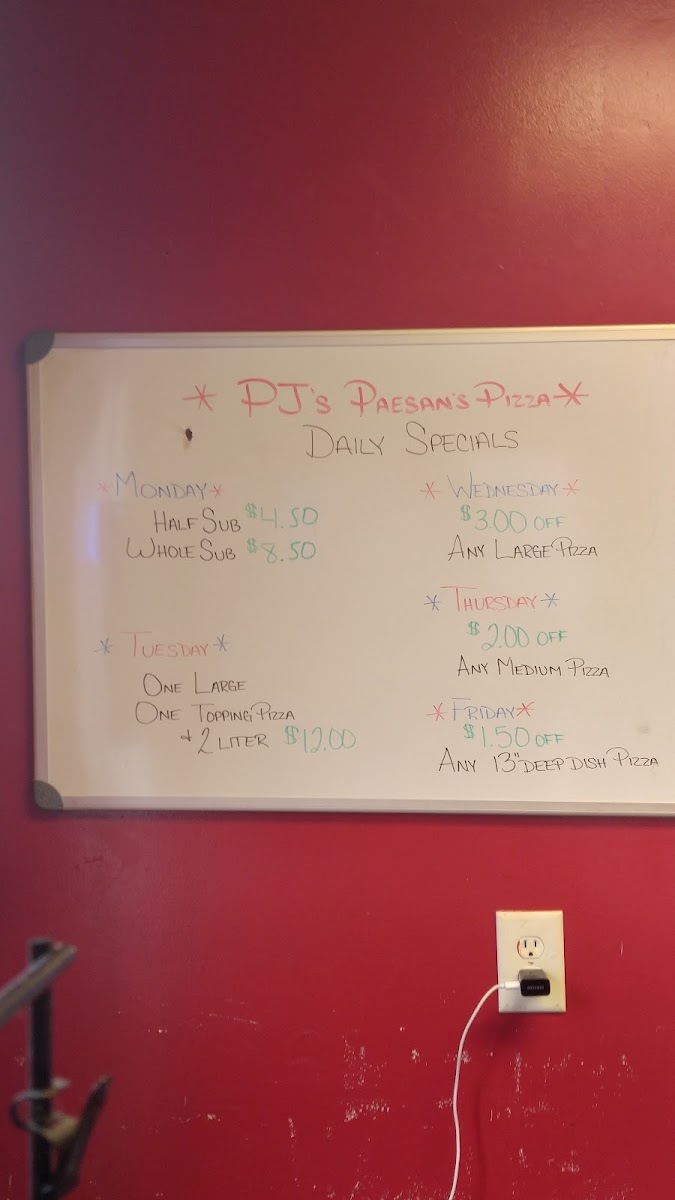 * PJ's PAESAN'S PIZZA *
DAILY SPECIALS
* MONDAY *
HALF SUB $4.50
WHOLE SUB $8.50
* TUESDAY *
ONE LARGE
ONE TOPPING PIZZA
+ 2 LITER $12.00
* WEDNESDAY *
$3.00 OFF
ANY LARGE PIZZA
* THURSDAY *
$2.00 OFF
ANY MEDIUM PIZZA
* FRIDAY *
$1.50 OFF
ANY 13" DEEP DISH PIZZA